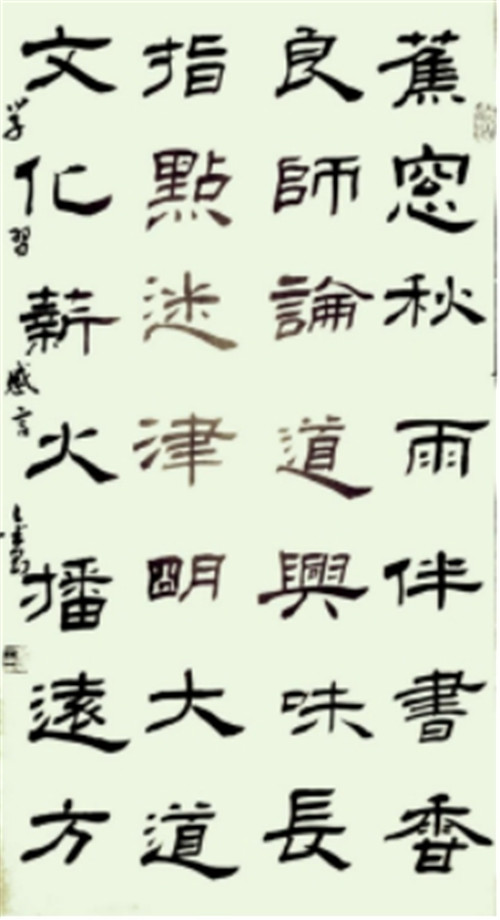 蕉窓秋雨伴書香
良師論道興味長
指點迷津明大道
文化薪火播遠方
学習感言